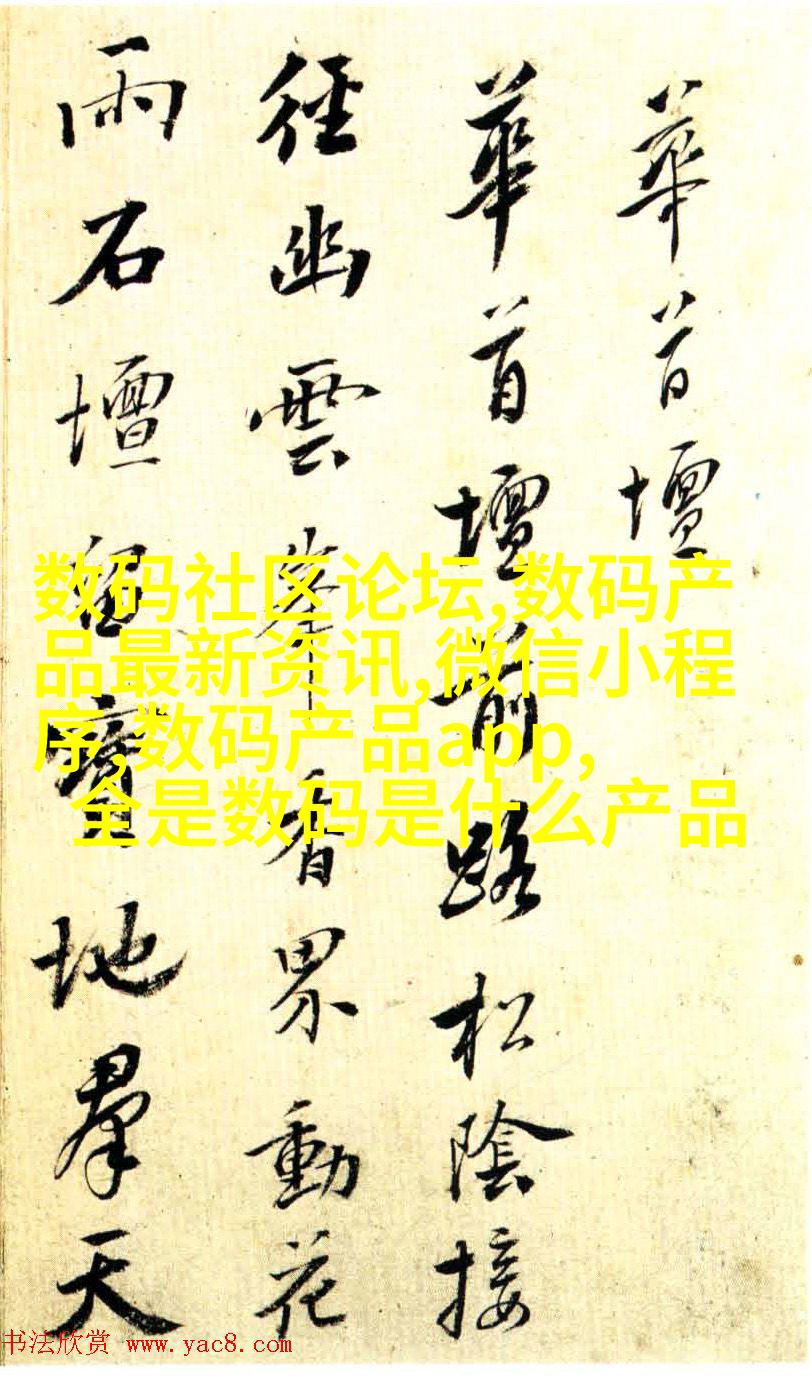 華首壇
華首壇前路松陰接
徑幽雲峯香界動花
雨石壇留寶地羣天
数码社区论坛,数码产
品最新资讯,微信小程
序,数码产品app,
全是数码是什么产品
书法欣赏 www.yac8.com